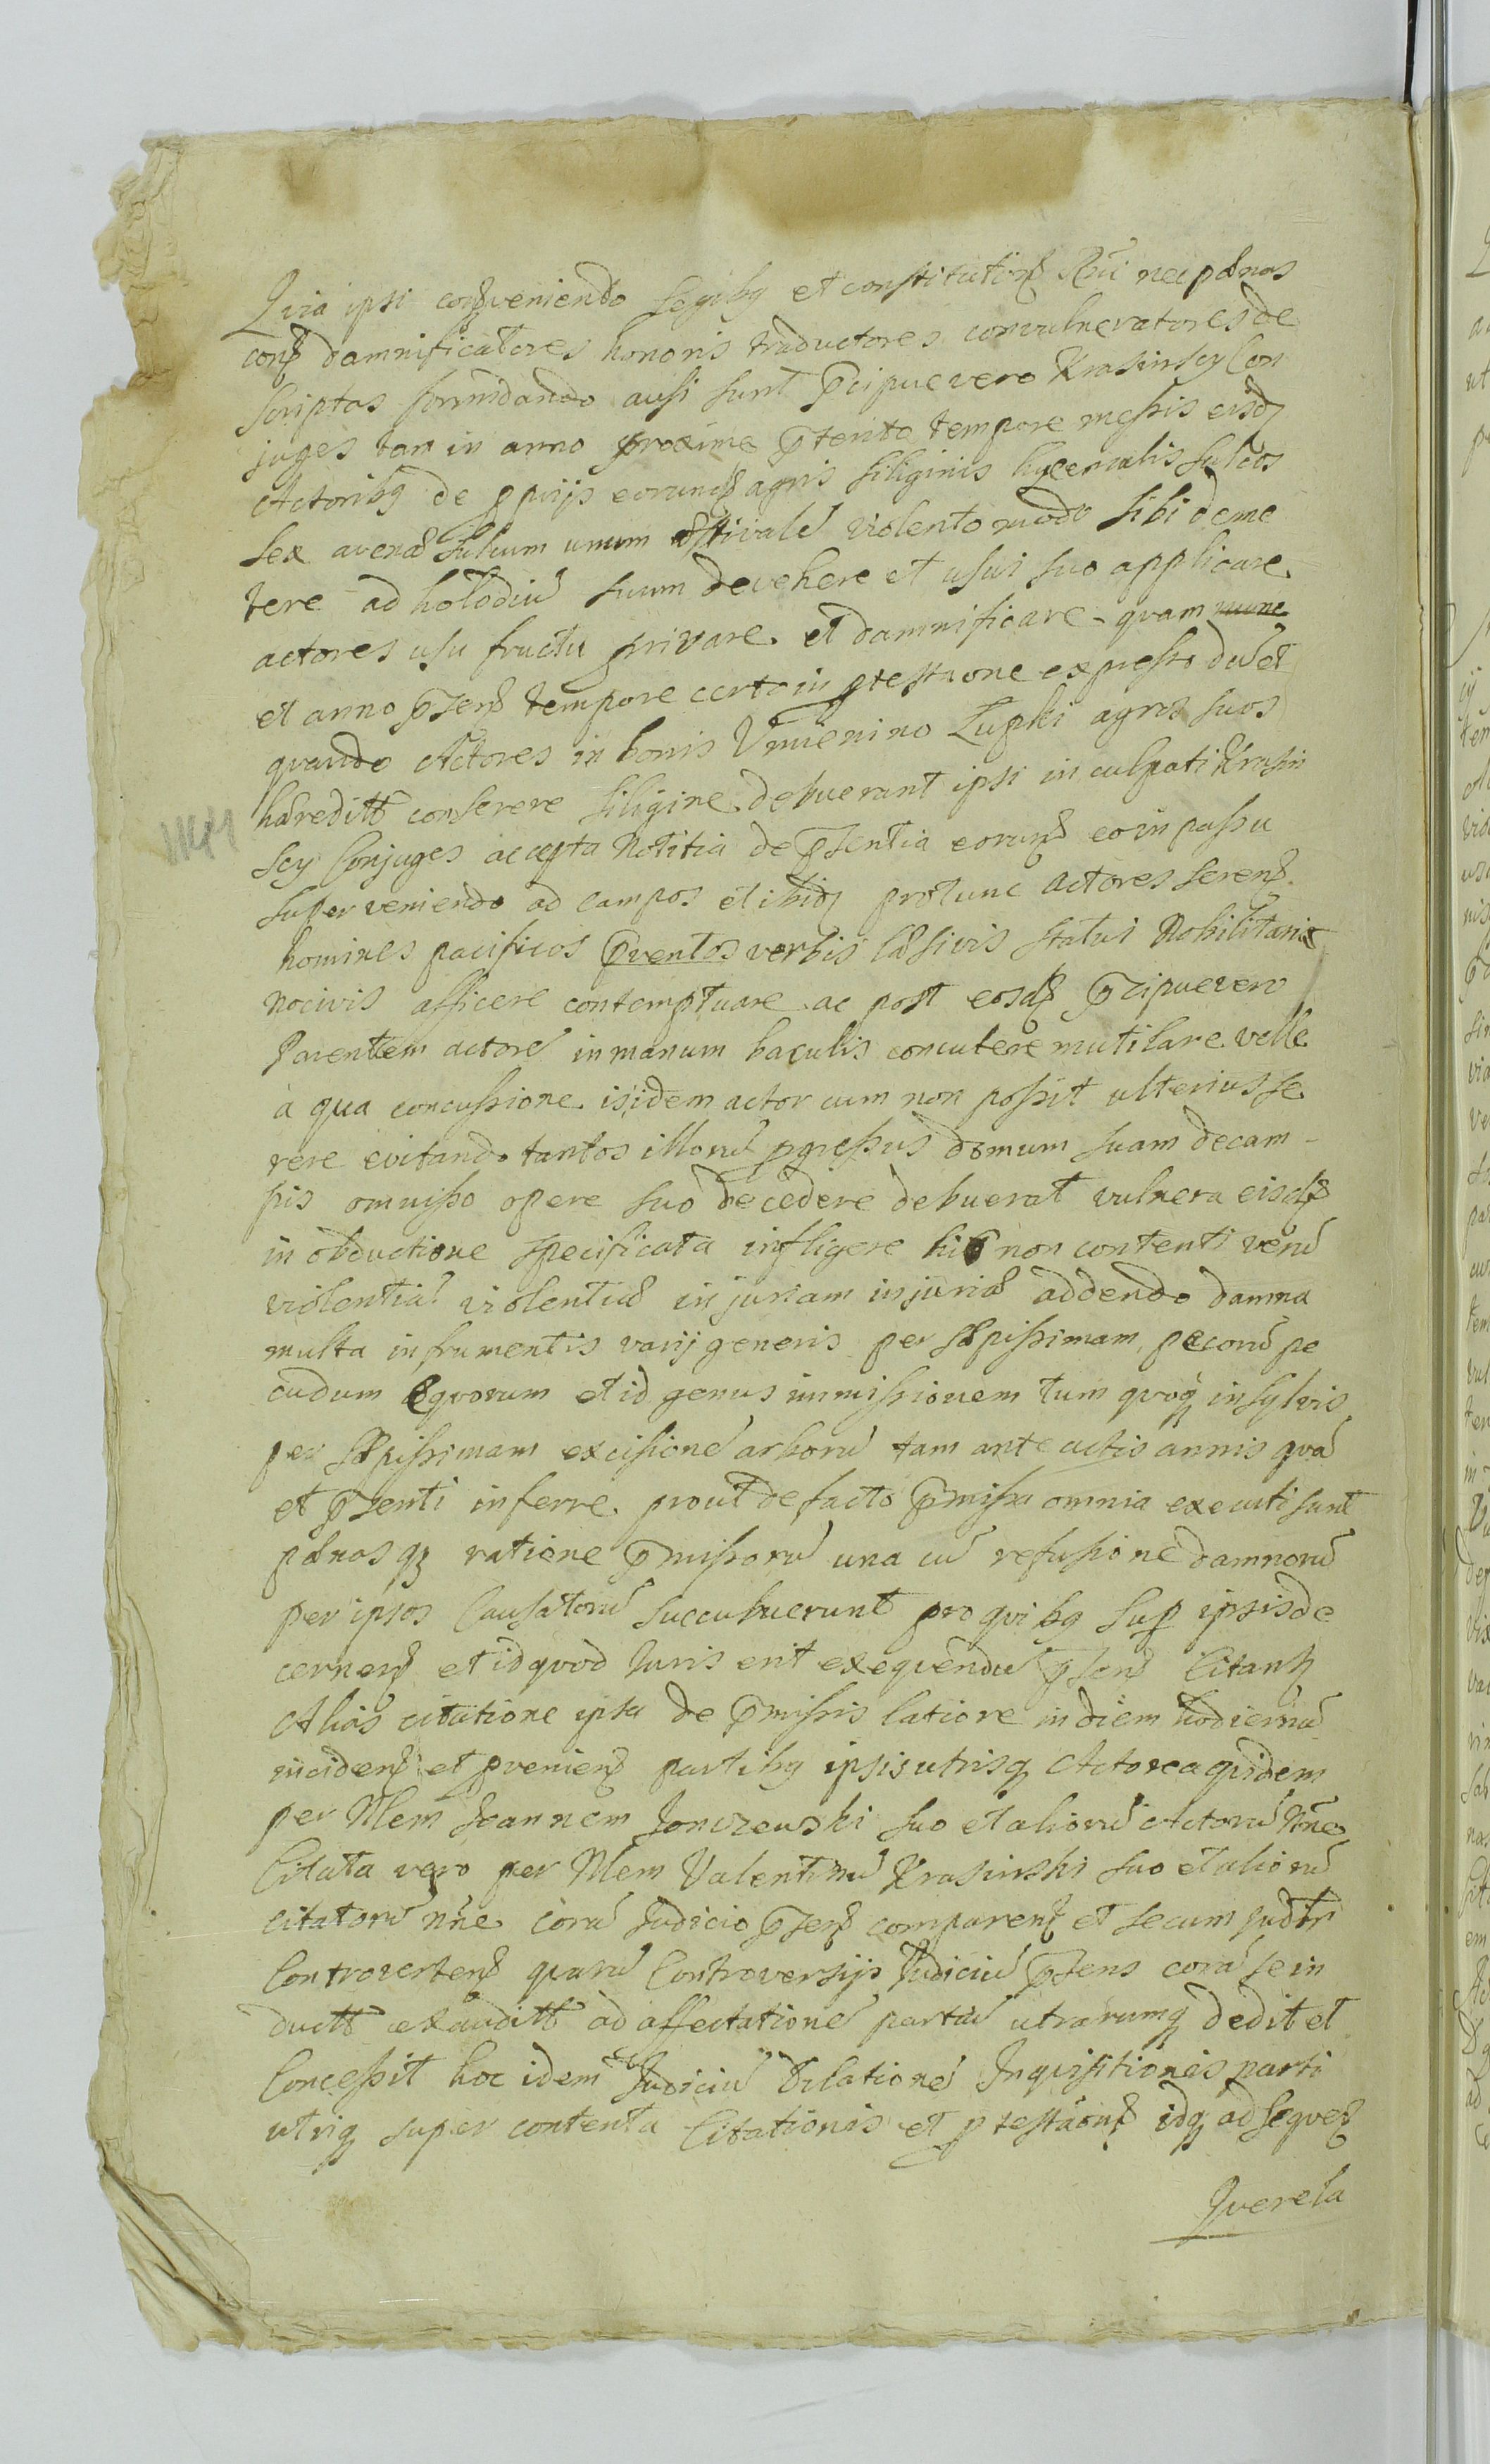 Quia ipsi contraveniendo legibq et constitutions Rni nec pænas
cons damnificatores honoris traductores convulneratores de
scriptas formidando ausi sunt Pcipue vero Krasinscy Con
juges tam in anno proxime Pterito tempore messis eisdq
Actoribq de pprijs eorundq agris siliginis hyemalis sulcos
sex avenæ sulcum unum æstivalẽ violento modo sibi deme
tere ad holodiũ suum devehere et usui suo applicare
actores usu fructu privare et damnificare quam nunc
et anno Psens tempore certo in ptestaone expresso
quando Actores in bonis Umienino Łupki agros suos
hæreditt conserere siligine debuerant ipsi inculpati Krasin
scy Conjuges accepta notitia de Psentia eorund eo in passu
superveniendo ad campos et ibidq protunc actores serens
homines pacificos Pventos verbis læsivis statui Nobilitari
nocivis afficere contemptuare ac post eosdq Pcipue vero
Parentem actorẽ in manum baculis concutere mutilare velle
a qua concussione isidem actor cum non possit ulterius se
rere evitando tantos illorũ pgressus domum suam de cam-
pis omnisso opere suo decedere debuerat vulnera eisdq
in obductione specificata infligere his non contenti verũ
violentiã violentiæ injuriam injuriæ addendo damna
multa in frumentis varij generis per sæpissimam pecorũ pe
cudum Equorum et id genus immissionem tum quoq in sylvis
per sæpissimam excisionẽ arborũ tam ante actis annis quã
et Psenti inferre prout de facto Pmissa omnia executi sunt
pænas qz ratione Pmissorũ una cũ refusione damnorũ
per ipsos Causatorũ succubuerunt pro quibq sup ipsis de
cernens et id quod Juris erit exequendũ Psens Citantq
Alias citatione ipsa de Pmissis latiore in diem hodiernã
incidens et pveniens partibq ipsis utrisq Actorea quidem
per Nlem Joannem Jonczewski suo et aliorũ Actorũ nñe
Citata vero per Nlem Valentinũ Krasinski suo et aliorũ
citatorũ nñe corã Judicio Psens comparens et secum Judtr
Controvertens quarũ Controversijs Judiciũ Psens corã se in
ductt exauditt ad affectationẽ partiũ utrarumq dedit et
Concessit hoc idem Judiciũ Dilationẽ Inquisitionis parti
utriq super contenta Citationis et ptestãons idq ad seques
Querela